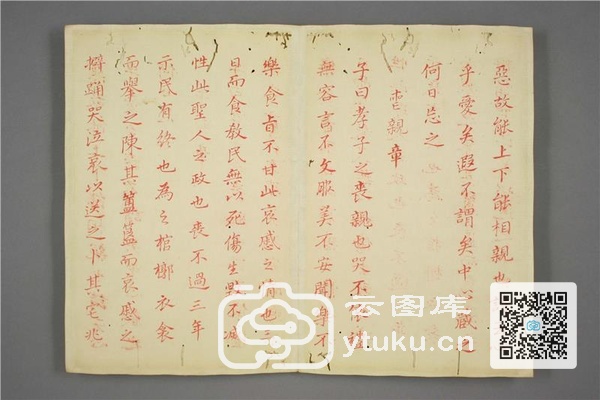 惡故能上下能相親也
乎愛矣遐不謂矣中心藏之
何日忘之
喪親章
子曰孝子之喪親也哭不
無容言不文服美不安聞樂不
樂食旨不甘此哀慼之情也三
日而食教民無以死傷生毀不滅
性此聖人之政也喪不過三年
示民有終也為之棺槨衣衾
而舉之陳其簠簋而哀慼之
擗踊哭泣哀以送之卜其宅兆
云图库
ytuku.cn